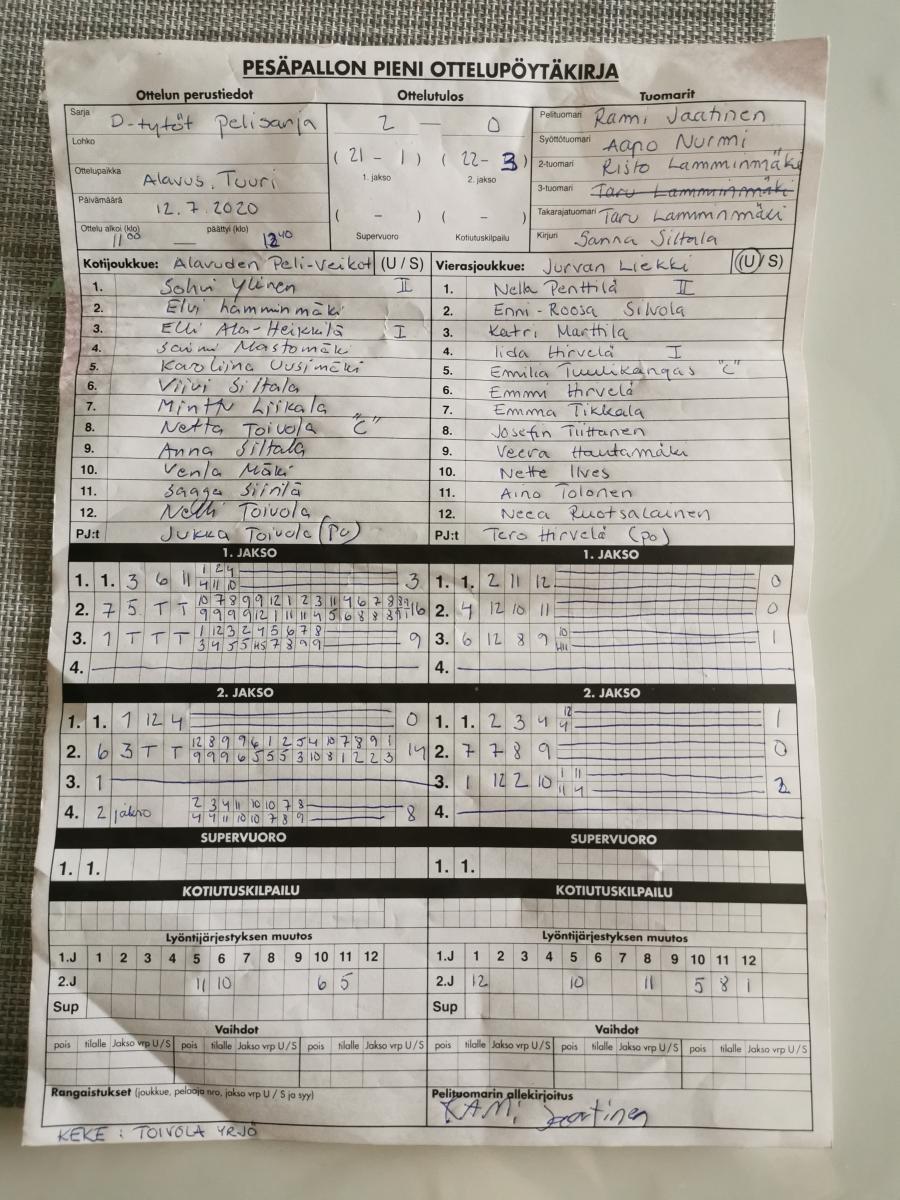 PESÄPALLON PIENI OTTELUPÖYTÄKIRJA
Ottelun perustiedot Ottelutulos Tuomarit
Sarja D-tytöt Pelisarja
Lohko
Ottelupaikka Alavus, Tuuri
Päivämäärä 12.7.2020
Ottelu alkoi (klo) päättyi (klo)
11 00 — 12 40
2 — 0
(21 - 1) (22 - 3)
1. jakso 2. jakso
( - ) ( - )
Supervuoro Kotiutuskilpailu
Pelituomari Rami Jaatinen
Syöttötuomari Aapo Nurmi
2-tuomari Risto Lamminmäki
3-tuomari Taru Lamminmäki
Takarajatuomari Taru Lamminmäki
Kirjuri Sanna Siltala
Kotijoukkue: Alavuden Peli-Veikot (U / S)
1. Ylinen II
2. Elvi Lamminmäki
3. Elli Ala-Heikkilä I
4. Saimi Mastomäki
5. Karoliina Uusimäki
6. Viivi Siltala
7. Minttu Liikala
8. Netta Toivola "C"
9. Anna Siltala
10. Venla Mäki
11. Saaga
12. Nelli Toivola
PJ:t Jukka Toivola (po)
Vierasjoukkue: Jurvan Liekki (U / S)
1. Nella Penttilä II
2. Enni-Roosa Silvola
3. Katri Marttila
4. Iida Hirvelä I
5. Emilia Tuulikangas "C"
6. Emmi Hirvelä
7. Emma Tikkala
8. Josefin Tiittanen
9. Veera Hautamäki
10. Nette Ilves
11. Aino Tolonen
12. Neea Ruotsalainen
PJ:t Tero Hirvelä (po)
1. JAKSO
1. 1. 3 6 11 3
1 2 4
4 11 10
2. 7 5 T T 16
3. 1 T T T 9
1 12 3 2 4 5 6 7 8
4.
1. JAKSO
1. 1. 2 11 12 0
2. 4 12 10 11 0
3. 6 12 8 9 1
4.
2. JAKSO
1. 1. 1 12 4 0
2. 6 3 T T 14
3. 1
4. 2 jakso 8
2 3 4 11 10 10 7 8
4 4 11 10 10 7 8 9
2. JAKSO
1. 1. 2 3 4 1
12
4
2. 7 7 8 9 0
3. 1 12 2 10 2
1 11
11 4
4.
SUPERVUORO
1. 1.
SUPERVUORO
1. 1.
KOTIUTUSKILPAILU
KOTIUTUSKILPAILU
Lyöntijärjestyksen muutos
1.J 1 2 3 4 5 6 7 8 9 10 11 12
2.J 11 10 6 5
Sup
Lyöntijärjestyksen muutos
1.J 1 2 3 4 5 6 7 8 9 10 11 12
2.J 12 10 11 5 8 1
Sup
Vaihdot
pois tilalle Jakso vrp U/S pois tilalle Jakso vrp U/S pois tilalle Jakso vrp U/S
Vaihdot
pois tilalle Jakso vrp U/S pois tilalle Jakso vrp U/S pois tilalle Jakso vrp U/S
Rangaistukset (joukkue, pelaaja nro, jakso vrp U / S ja syy)
Pelituomarin allekirjoitus
RAMi Jaatinen
KEKE : TOIVOLA YRJÖ